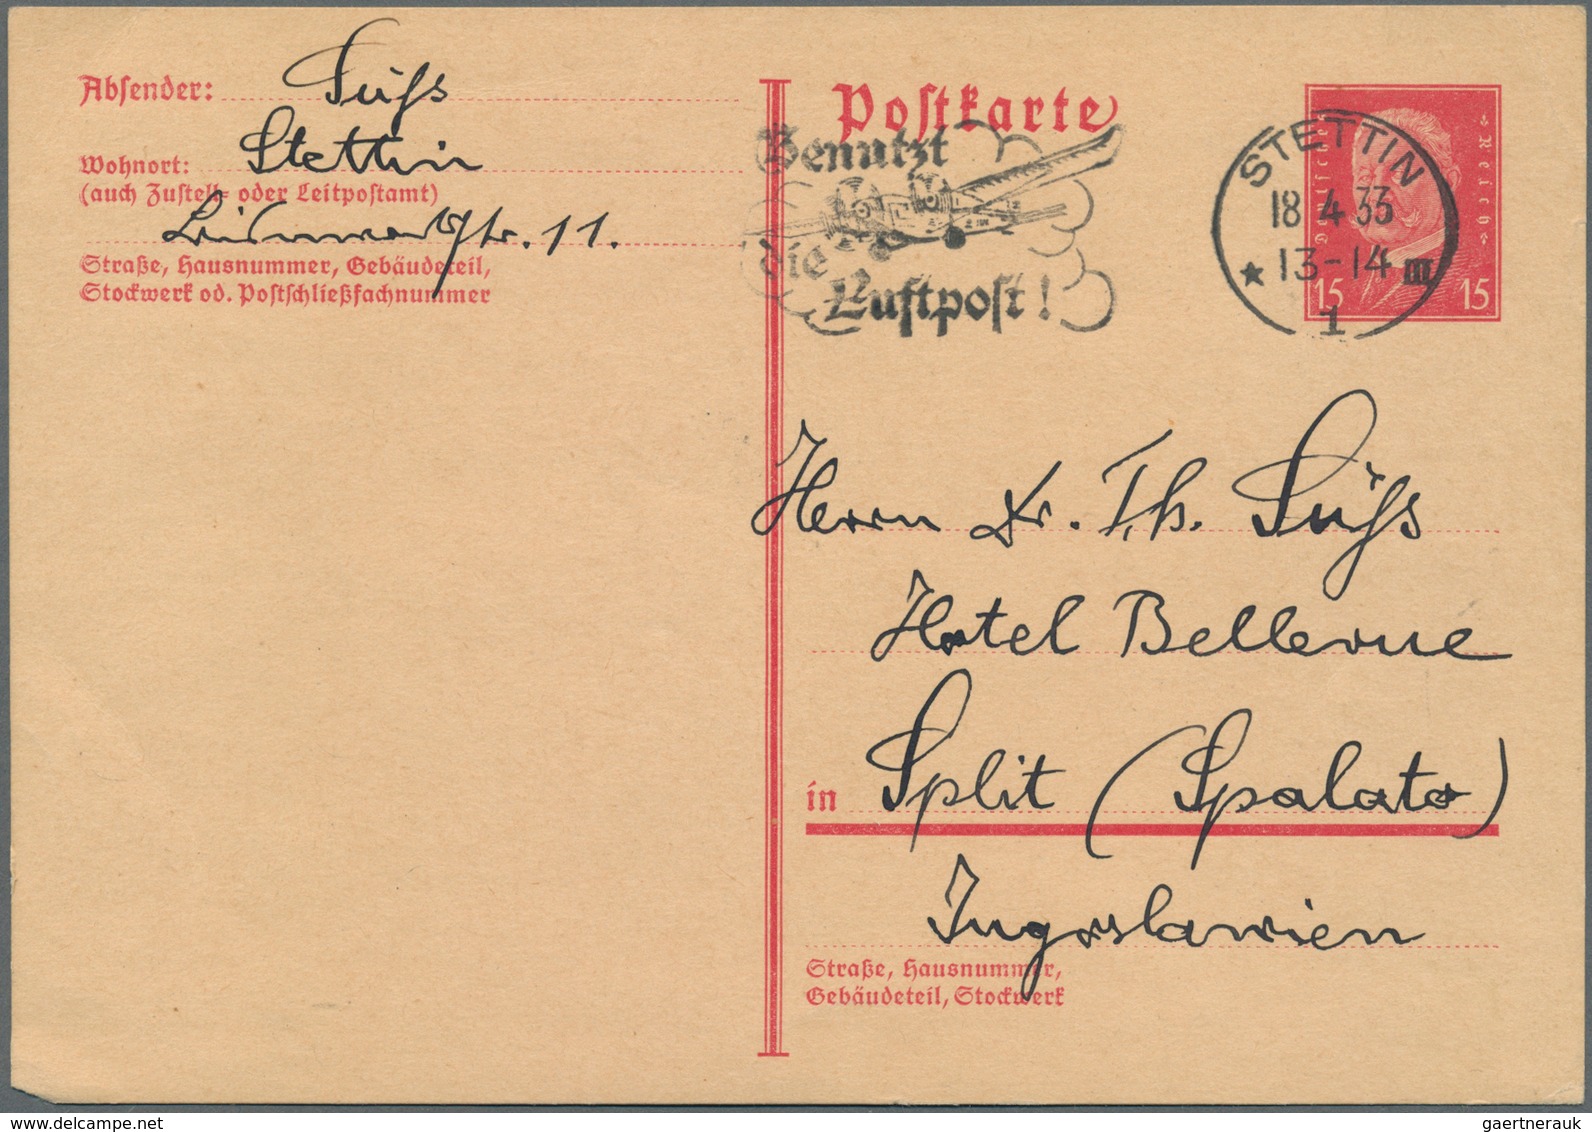 Absender: Süß
Stettin
Wohnort:
(auch Zustell- oder Leitpostamt)
str. 11.
Straße, Hausnummer, Gebäudeteil,
Stockwerk od. Postschließfachnummer
Postkarte
Benutzt
die
Luftpost!
STETTIN
18.4.33
13-14 III
★
1
Deutsches
Reich
15 15
Herrn Dr. Th. Süß
Hotel Bellevue
in Split (Spalato)
Jugoslawien
Straße, Hausnummer,
Gebäudeteil, Stockwerk
gaertnerauk